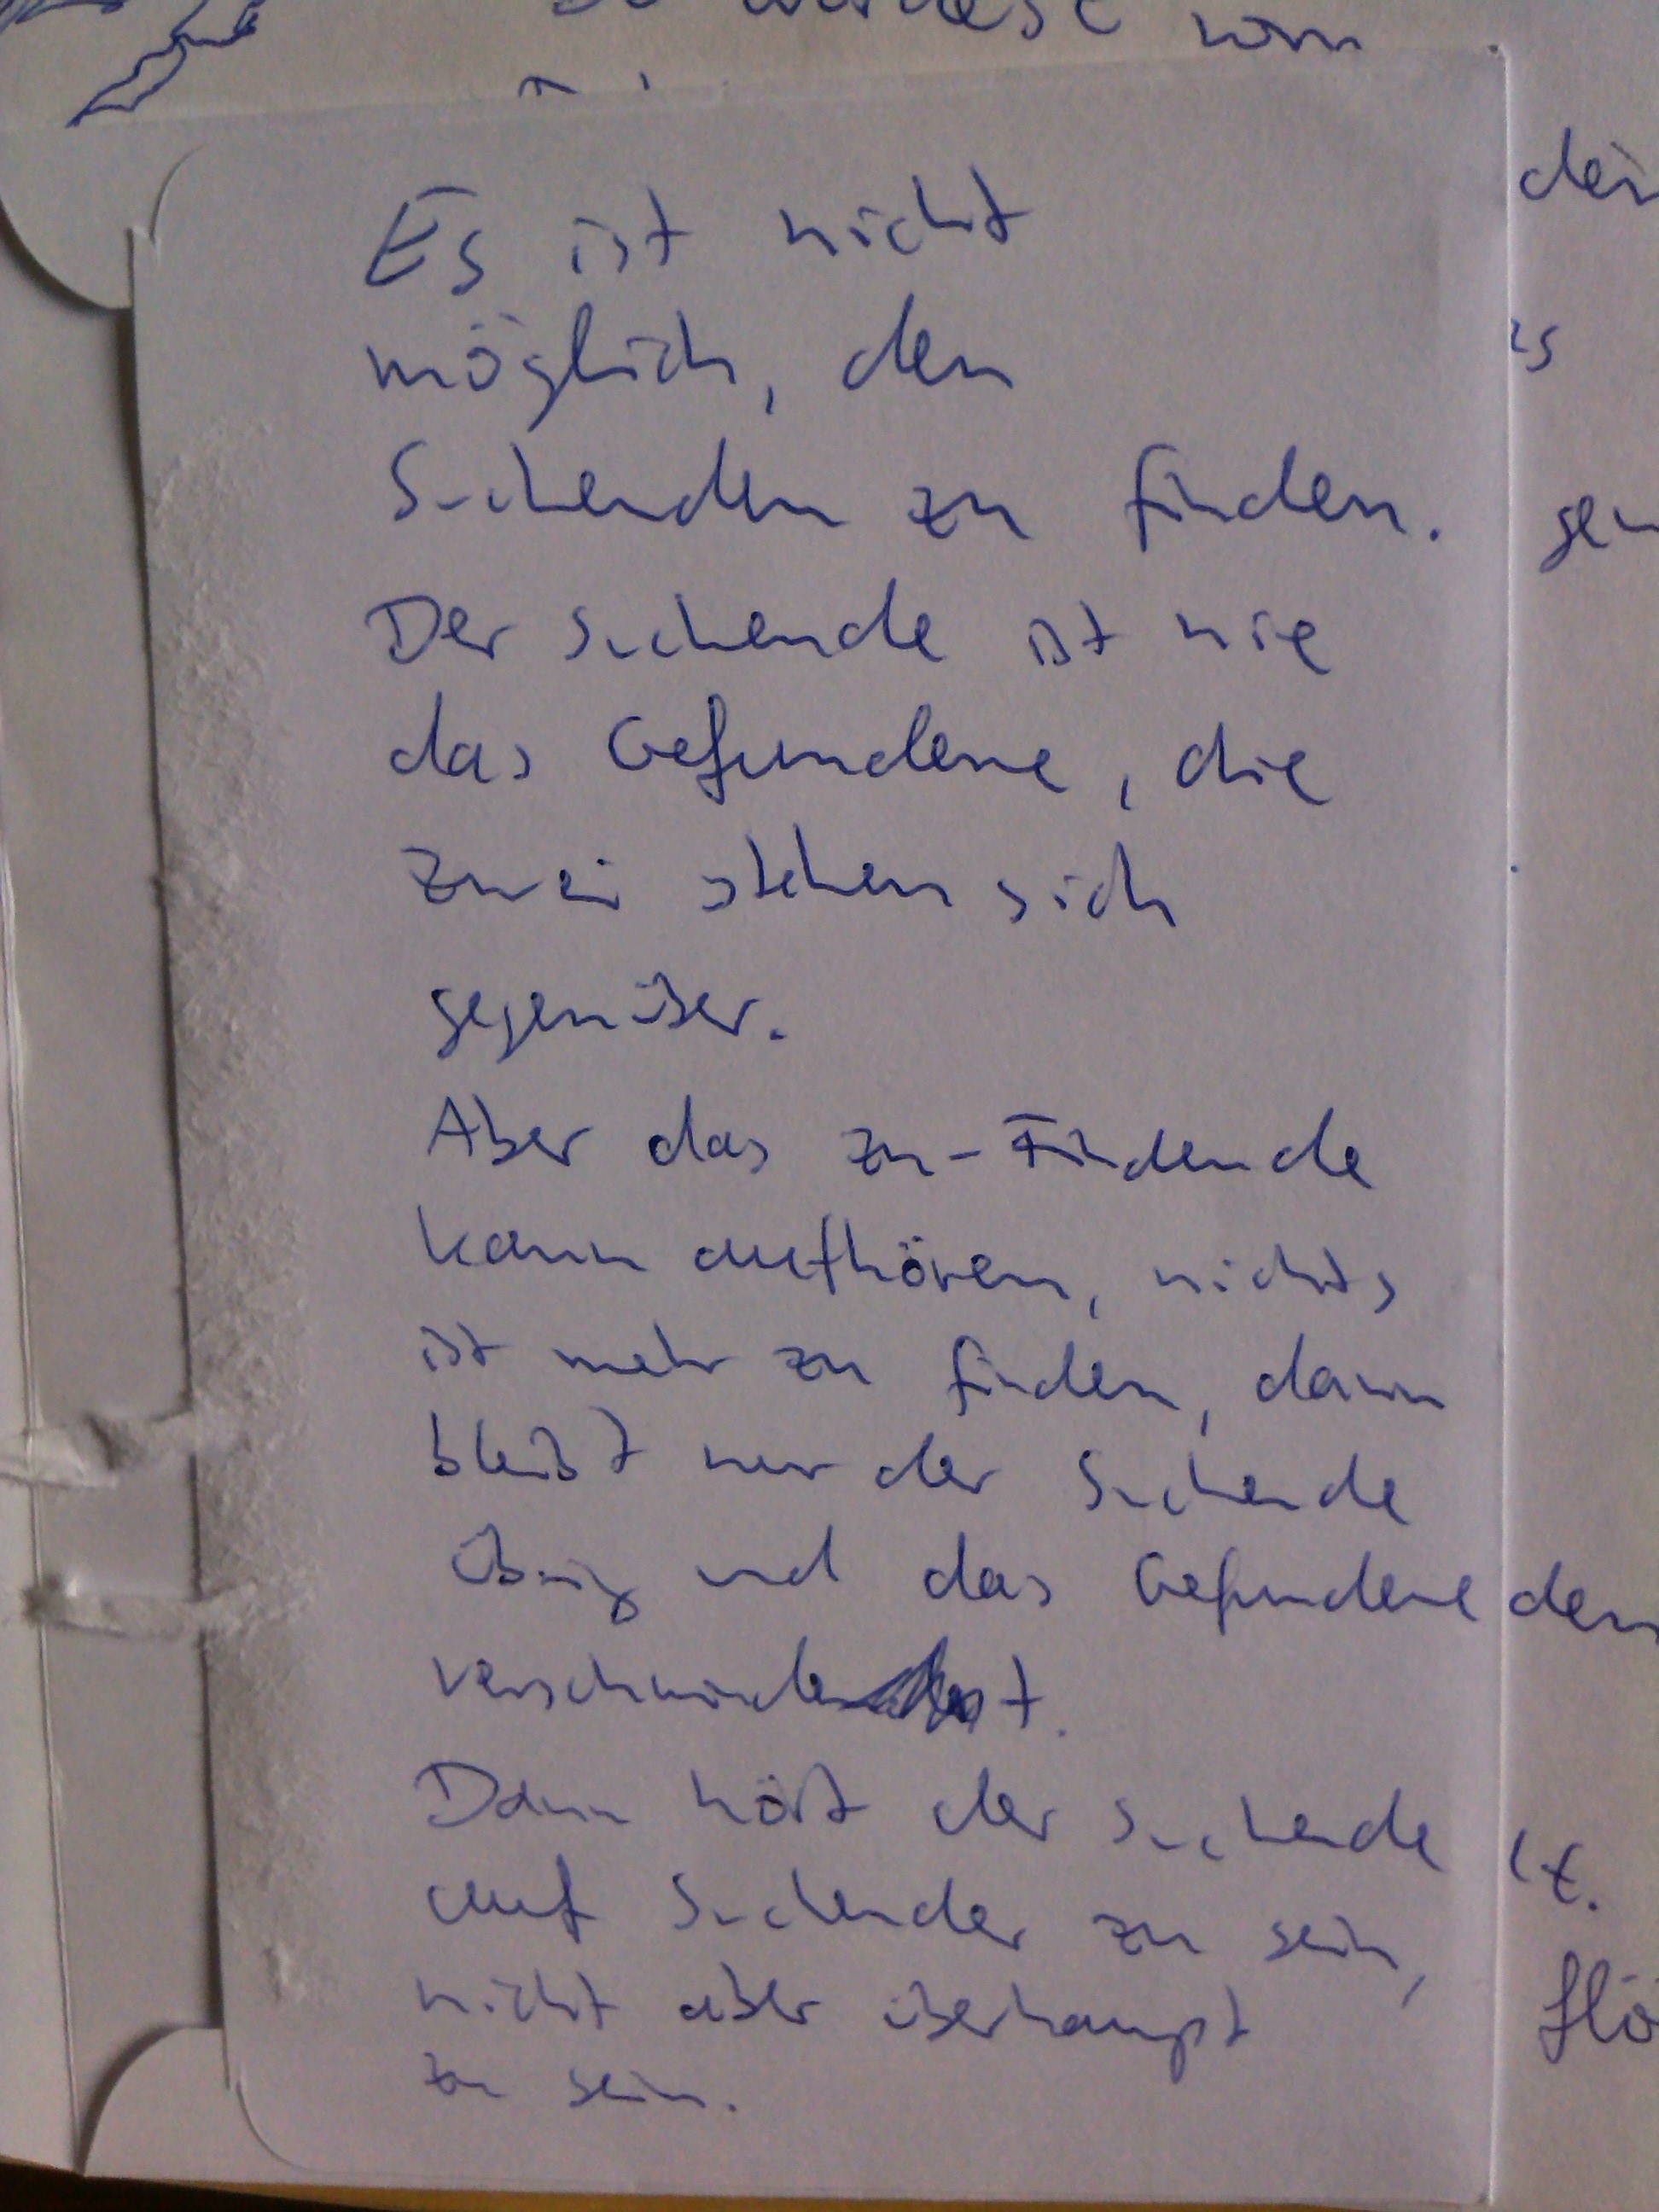 Du würdest vom
Es ist nicht
möglich, den
Suchenden zu finden.
Der suchende ist nie
das Gefundene, die
zwei stehen sich
gegenüber.
Aber das zu-Findende
kann aufhören, nichts
ist mehr zu finden, dann
bleibt nur der Suchende
übrig und das Gefundene
verschwindet.
Dann hört der suchende
auf Suchender zu sein,
nicht aber überhaupt
zu sein.